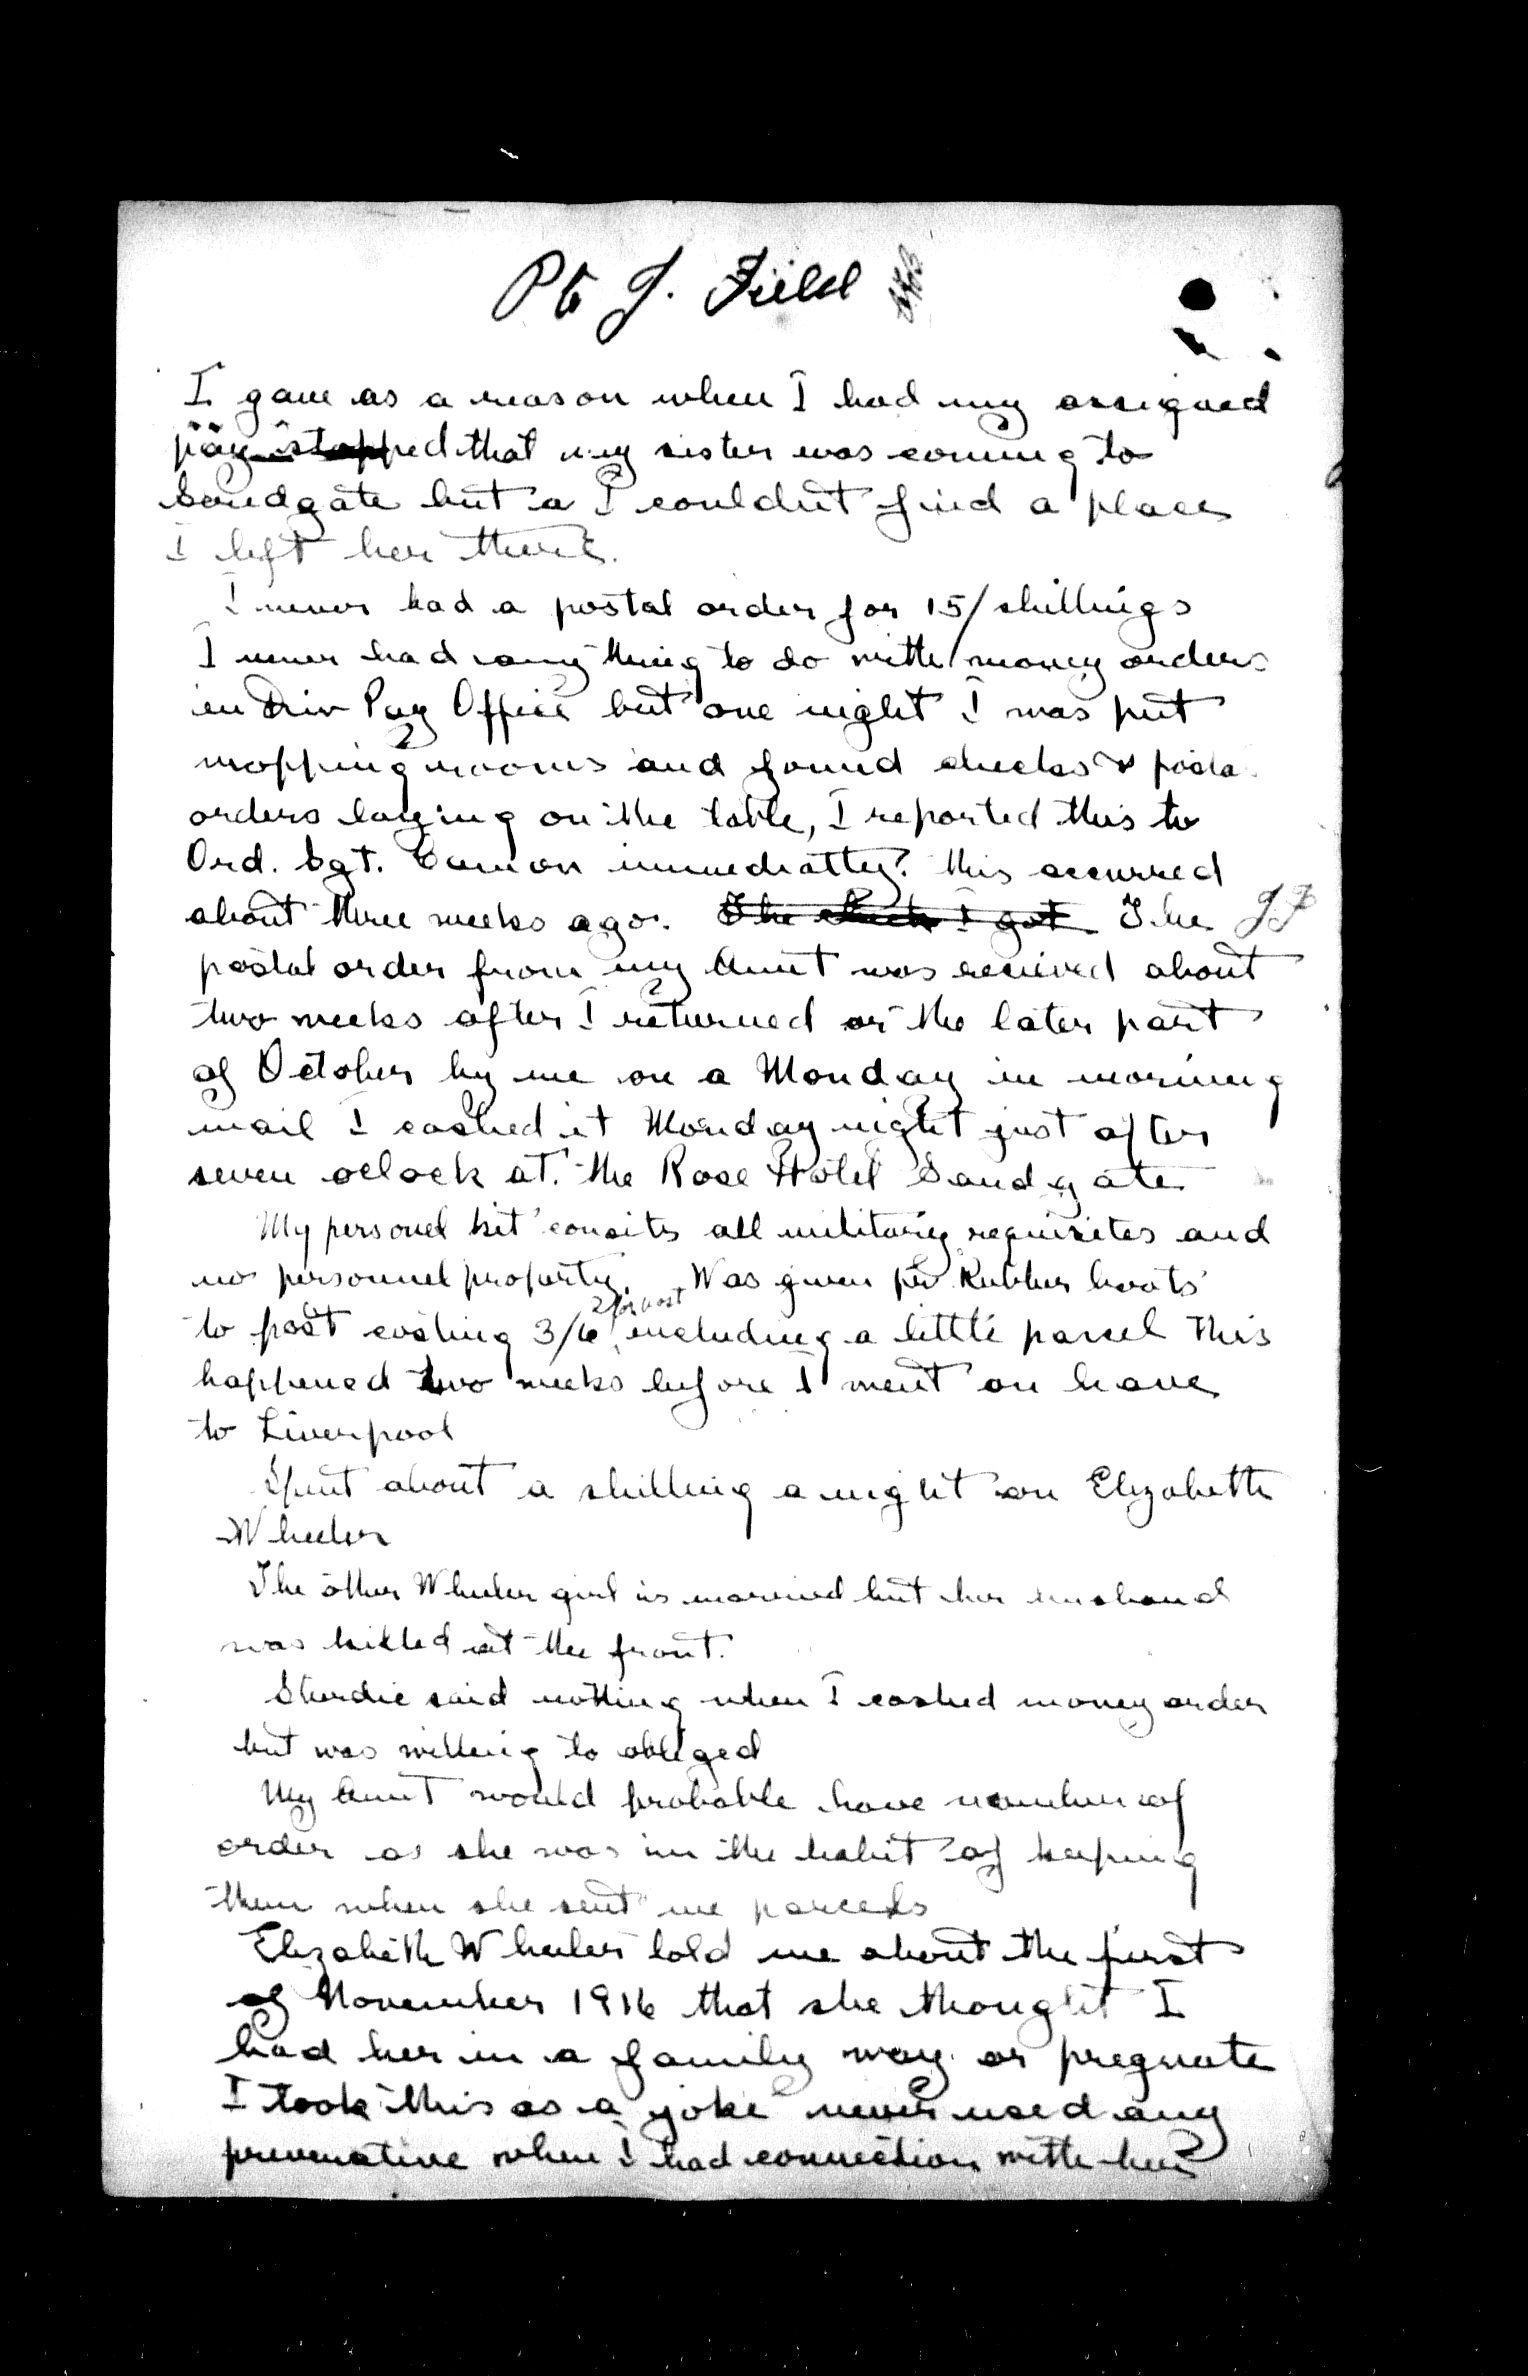 Pte J. Field
I gave as a reason when I had my assigned
pay stopped that my sister was coming to
Sandgate but a I couldnt find a place
I left her there.
I never had a postal order for 15/shillings
I never had any thing to do with money orders
in Div Pay Office but one night I was put
mopping rooms and found checks & postal
orders laying on the table, I reported this to
Ord. Sgt. immediatly. this occurred
about three weeks ago. The check I got The JF
postal order from my Aunt was recieved about
two weeks after I returned or the later part
of October by me on a Monday in morning
mail I cashed it Monday night just after
seven oclock at. the Rose Hotel Sandgate
My personel kit consits all military requisites and
no personnel property. Was given pr Rubber boots
to post costing 3/6 including a little parcel This
happened two weeks before I went on leave
to Liverpool
Spent about a shilling a night on Elizabeth
Wheeler
The other Wheeler girl is married but her husband
was killed at the front.
said nothing when I cashed money order
but was willing to obliged
My Aunt would probable have number of
order as she was in the habit of keeping
them when she sent me parcels
Elizabeth Wheeler told me about the first
of November 1916 that she thought I
had her in a family way or pregnate
I took this as a joke never used any
prevenative when I had connection with her